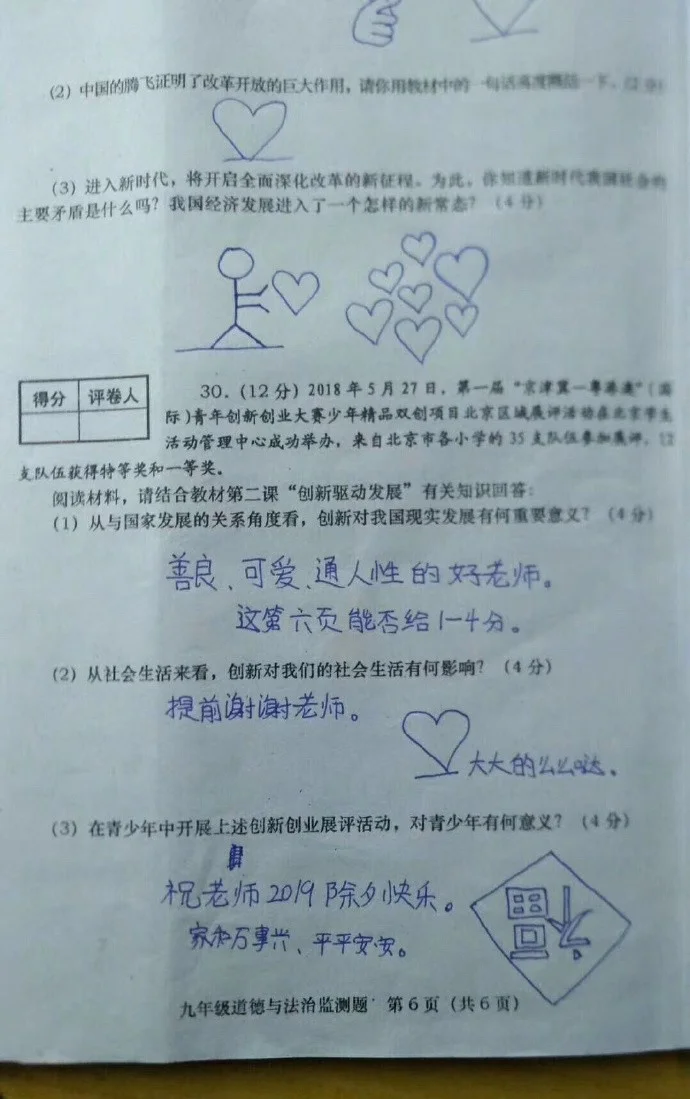 (2) 中国的腾飞证明了改革开放的巨大作用，请你用教材中的一句话高度概括一下。(2分)
(3) 进入新时代，将开启全面深化改革的新征程。为此，你知道新时代我国社会的
主要矛盾是什么吗？我国经济发展进入了一个怎样的新常态？（4分）
得分 评卷人
30．(12分) 2018年5月27日，第一届“京津冀—粤港澳”(国
际)青年创新创业大赛少年精品双创项目北京区域展评活动在北京学生
活动管理中心成功举办，来自北京市各小学的35支队伍参加展评，12
支队伍获得特等奖和一等奖。
阅读材料，请结合教材第二课“创新驱动发展”有关知识回答：
(1) 从与国家发展的关系角度看，创新对我国现实发展有何重要意义？（4分）
善良、可爱、通人性的好老师。
这第六页能否给1-4分。
(2) 从社会生活来看，创新对我们的社会生活有何影响？（4分）
提前谢谢老师。
大大的么么哒、
(3) 在青少年中开展上述创新创业展评活动，对青少年有何意义？（4分）
祝老师2019除夕快乐。
家和万事兴、平平安安。
九年级道德与法治监测题 第6页（共6页）